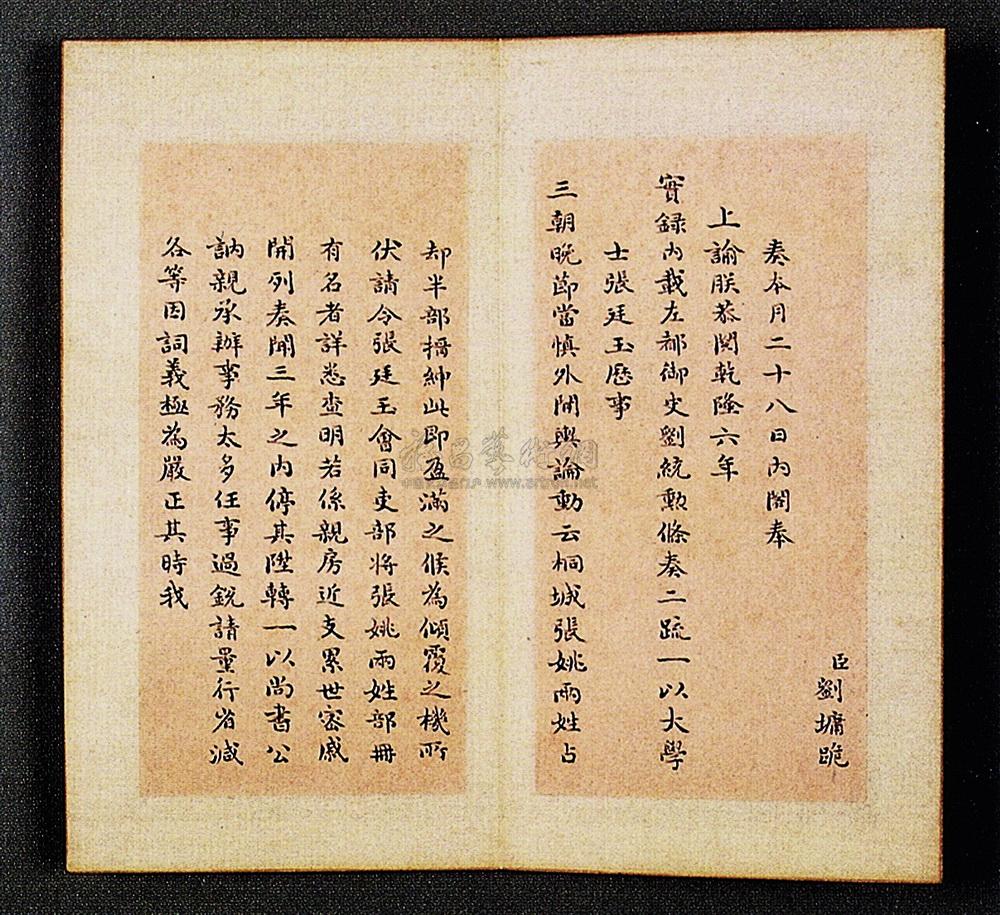 臣劉墉跪
奏本月二十八日內閣奉
上諭朕恭閱乾隆六年
實錄內載左都御史劉統勲條奏二疏一以大學
士張廷玉歷事
三朝晚節當慎外間輿論動云桐城張姚兩姓占
却半部搢紳此即盈滿之候為傾覆之機所
伏請令張廷玉會同吏部將張姚兩姓部冊
有名者詳悉查明若係親房近支累世密戚
開列奏聞三年之內停其陞轉一以尚書公
訥親承辦事務太多任事過銳請量行省減
各等因詞義極為嚴正其時我
www.artron.net